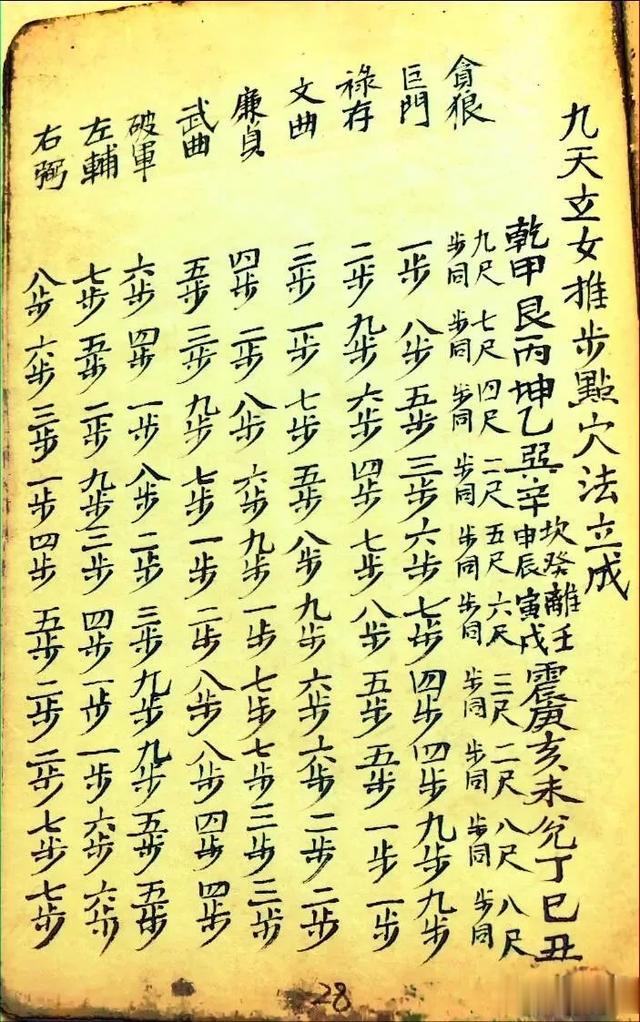 九天立女推步點穴法立成
乾甲艮丙坤乙巽辛坎癸離壬申辰寅戌震庚亥未兌丁巳丑
貪狼 九尺步同 七尺步同 四尺步同 二尺步同 五尺步同 六尺步同 三尺步同 二尺步同 八尺步同 八尺步同
巨門 一步 八步 五步 三步 六步 七步 四步 四步 九步 九步
祿存 二步 九步 六步 四步 七步 八步 五步 五步 一步 一步
文曲 三步 一步 七步 五步 八步 九步 六步 六步 二步 二步
廉貞 四步 二步 八步 六步 九步 一步 七步 七步 三步 三步
武曲 五步 三步 九步 七步 一步 二步 八步 八步 四步 四步
破軍 六步 四步 一步 八步 二步 三步 九步 九步 五步 五步
左輔 七步 五步 二步 九步 三步 四步 一步 一步 六步 六步
右弼 八步 六步 三步 一步 四步 五步 二步 二步 七步 七步
28